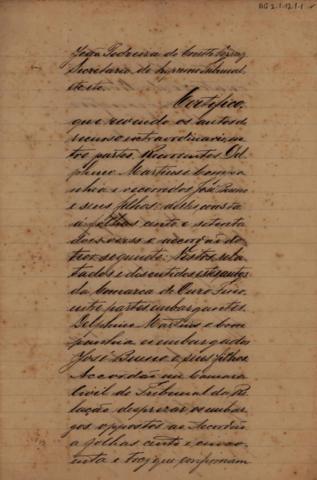 BG 2.1.12.1-1
João Pedreira do Couto Ferraz
Secretario do Supremo Tribunal,
etc etc.
Certifico,
que revendo os autos de
recurso extraordinario, en-
tre partes, Recorrentes Del-
phino Martins e Compa-
nhia e recorridos José Bueno
e seus filhos: delles consta
a folhas cento e setenta
e accordão do
teor seguinte: Vistos, rela-
tados e discutidos estes autos
da Comarca de Ouro Fino,
entre partes embargantes
Delphino Martins e Com-
panhia e embargados
José Bueno e seus filhos.
Accordão em Camara
Civil do Tribunal da Re-
lação desprezar os embar-
gos oppostos ao Accordão
a folhas cento e cinco-
enta e trez, que confirmam